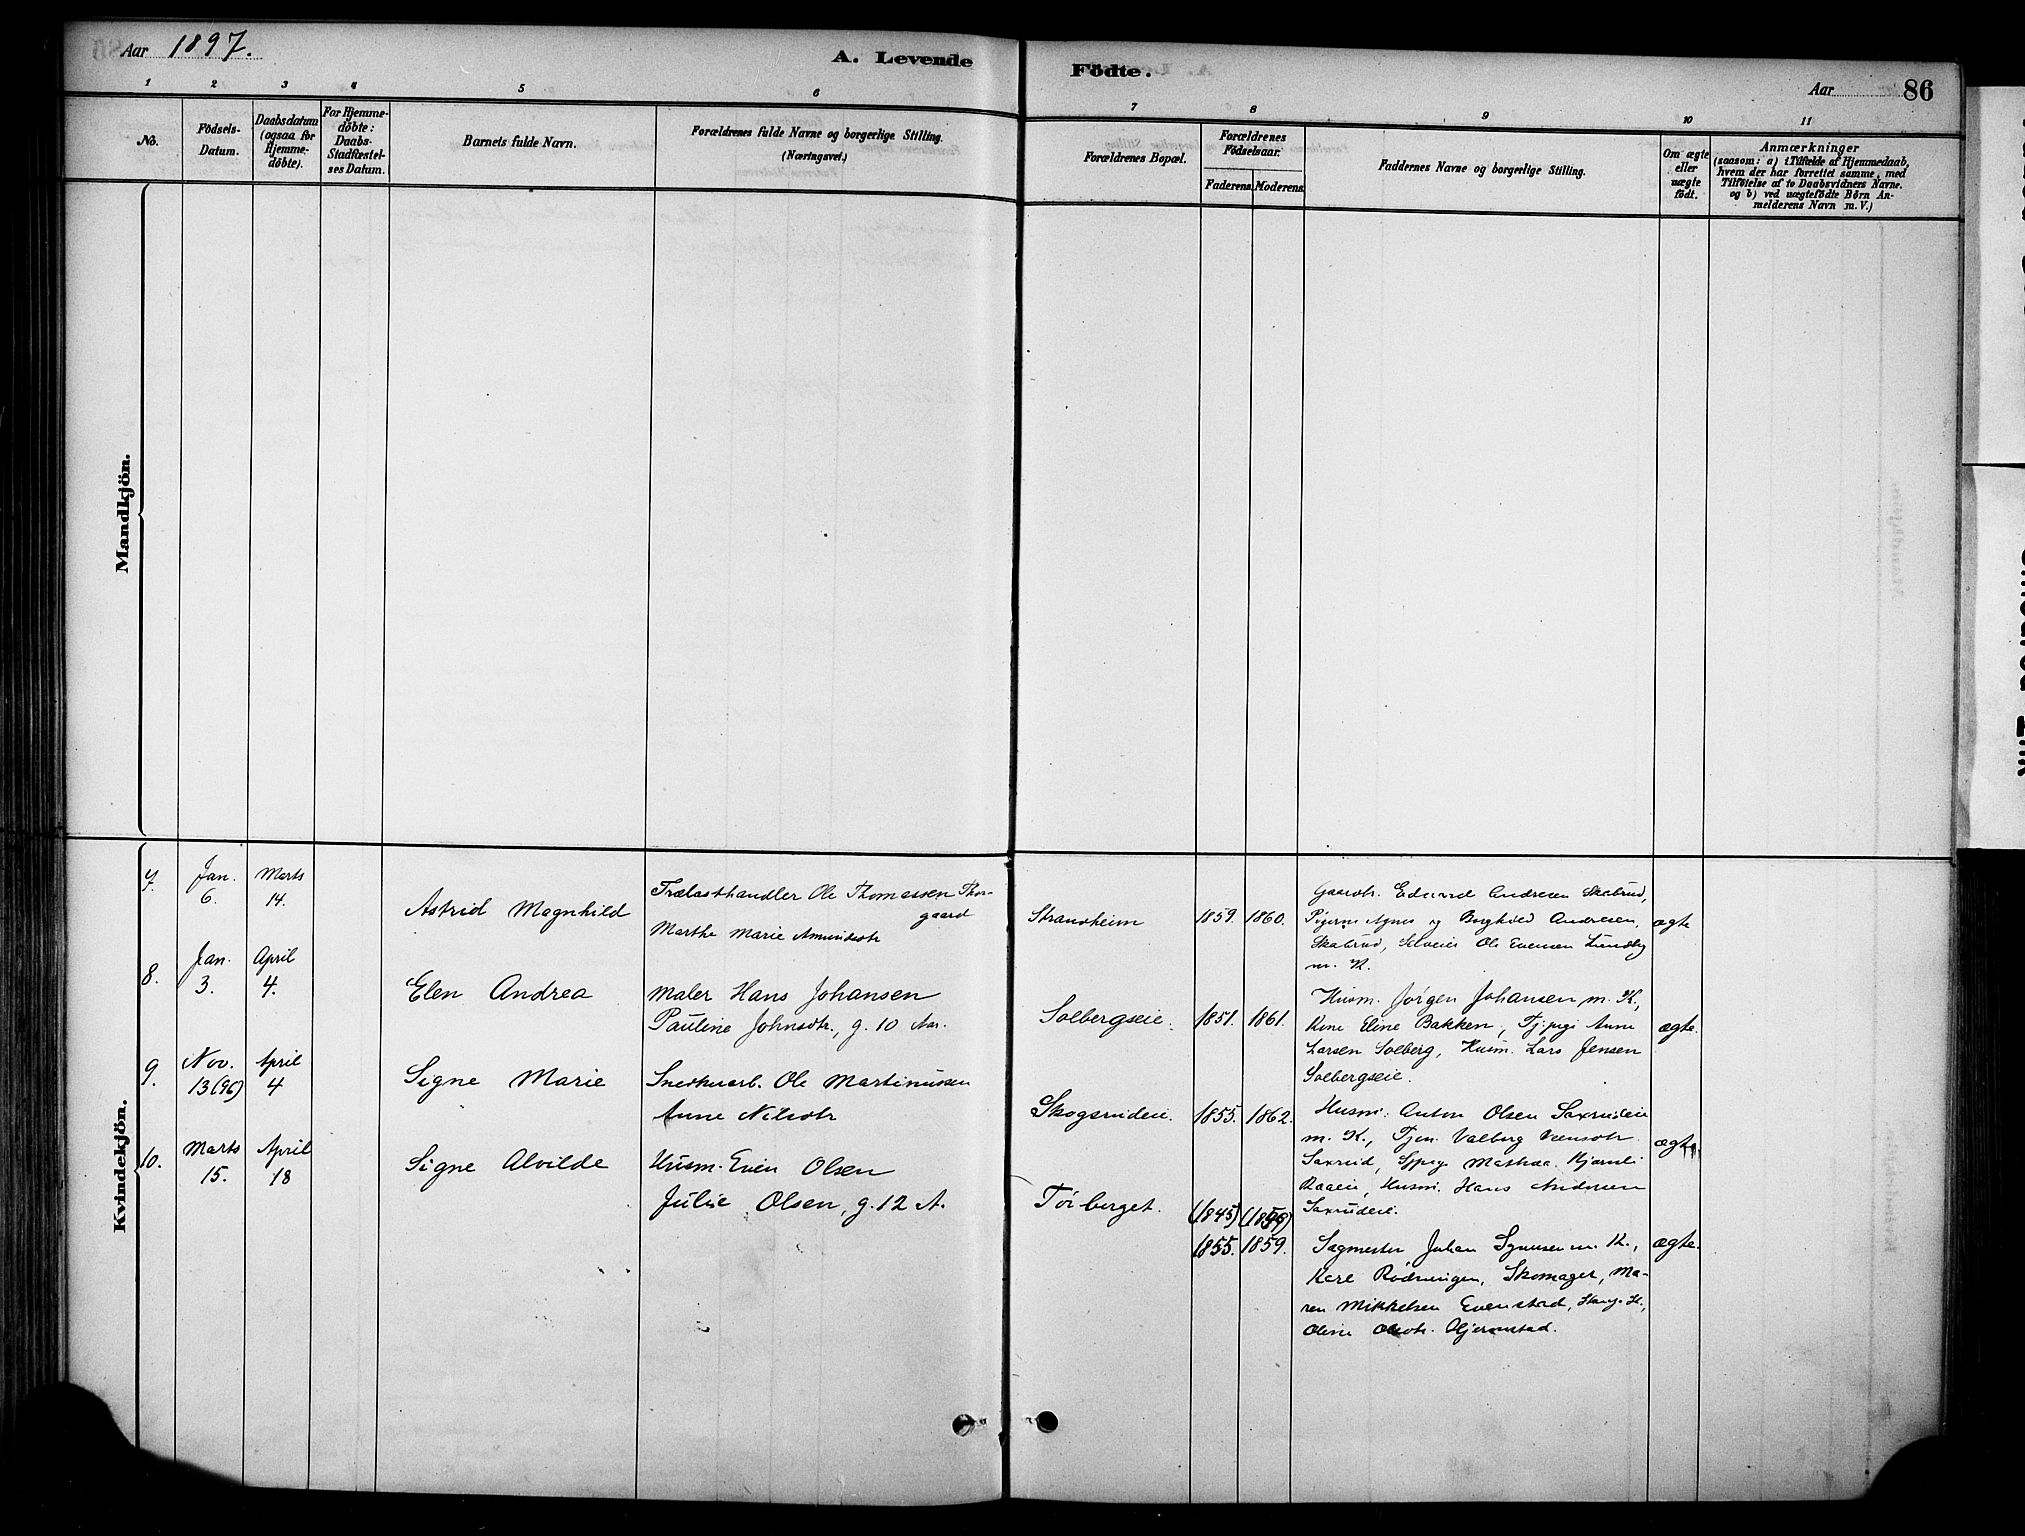 Aar 1897.
A. Levende
Födte.
Aar
86
1 2 3 4 5 6
7 8 9 10 11
No.
Födsels-
Datum.
Daabsdatum
(ogsaa for
Hjemme-
döbte).
For Hjemme-
döbte:
Daabs-
Stadfæstel-
ses Datum.
Barnets fulde Navn.
Forældrenes fulde Navne og borgerlige Stilling.
(Næringsvei.)
Forældrenes Bopæl.
Forældrenes
Födselsaar.
Faderens. Moderens.
Faddernes Navne og borgerlige Stilling.
Om ægte
eller
uægte
födt.
Anmærkninger
(saasom: a) i Tilfælde af Hjemmedaab,
hvem der har forrettet samme, med
Tilföielse af to Daabsvidners Navne.
og b) ved uægtefödte Börn An-
melderens Navn m. V.)
Mandkjön.
Kvindekjön.
7. Jan. 6. Marts 14.
Astrid Magnhild
Trælasthandler Ole Thomassen Thor-
gaard
Marthe Marie Amundsdtr
Strandheim
1859. 1860.
Gaardbr. Edvard Andresen Skabrud,
Pigerne Agnes og Borghild Andresen,
Skabrud, Selveier Ole Evensen Lundby
m. K.
ægte
8. Jan. 3. April 4.
Elen Andrea
Maler Hans Johansen
Pauline Johnsdtr., g. 10 Aar.
Solbergseie.
1851. 1861.
Husm. Jörgen Johansen m. K.,
Kone Eline Bakken, Tj.pige Anne
Larsen Solberg, Husm. Lars Jensen
Solbergseie.
ægte.
9. Nov. 13 (96) April 4
Signe Marie
Snedkerarb. Ole Martinussen
Anne Nilsdtr
Skogsrudeie.
1855. 1862.
Husm. Anton Olsen Saxrudeie
m. K., Tjen. Valborg
Saxrud, Mathea
Raaeie, Husm. Hans Andersen
Saxrudeie.
ægte.
10. Marts 15. April 18
Signe Alvilde
Husm. Even Olsen
Julie Olsen, g. 12 A.
Törberget.
(1845)
1855. 1859.
Sagmester Johan m. K.,
Kare Rödningen, Skomager, Ma-
ren Mikkelsen Evenstad,
Oline Olsdtr. Gjermstad.
ægte.